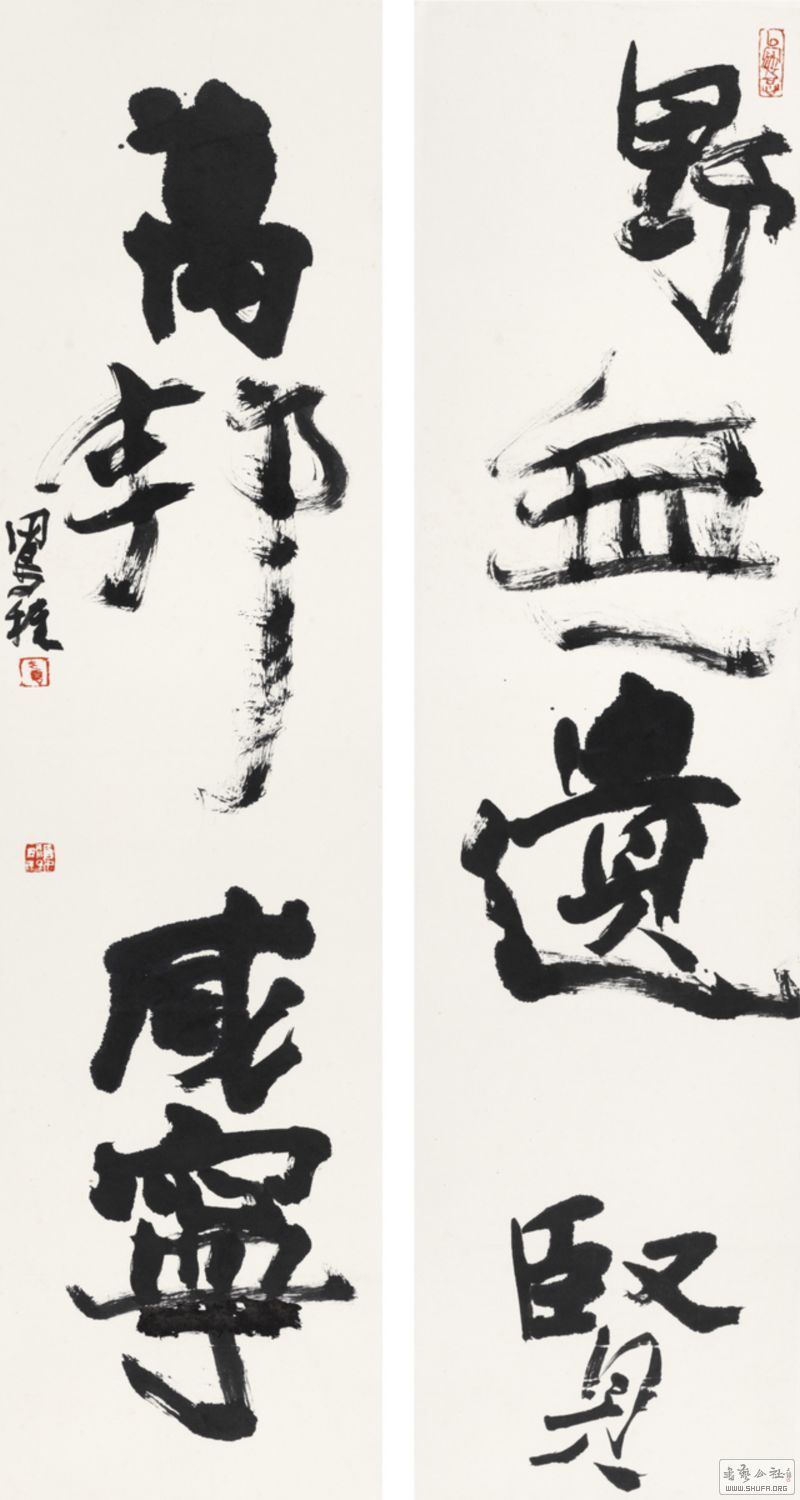 野無遺賢
萬邦咸寧
書藝公社
WWW.SHUFA.ORG